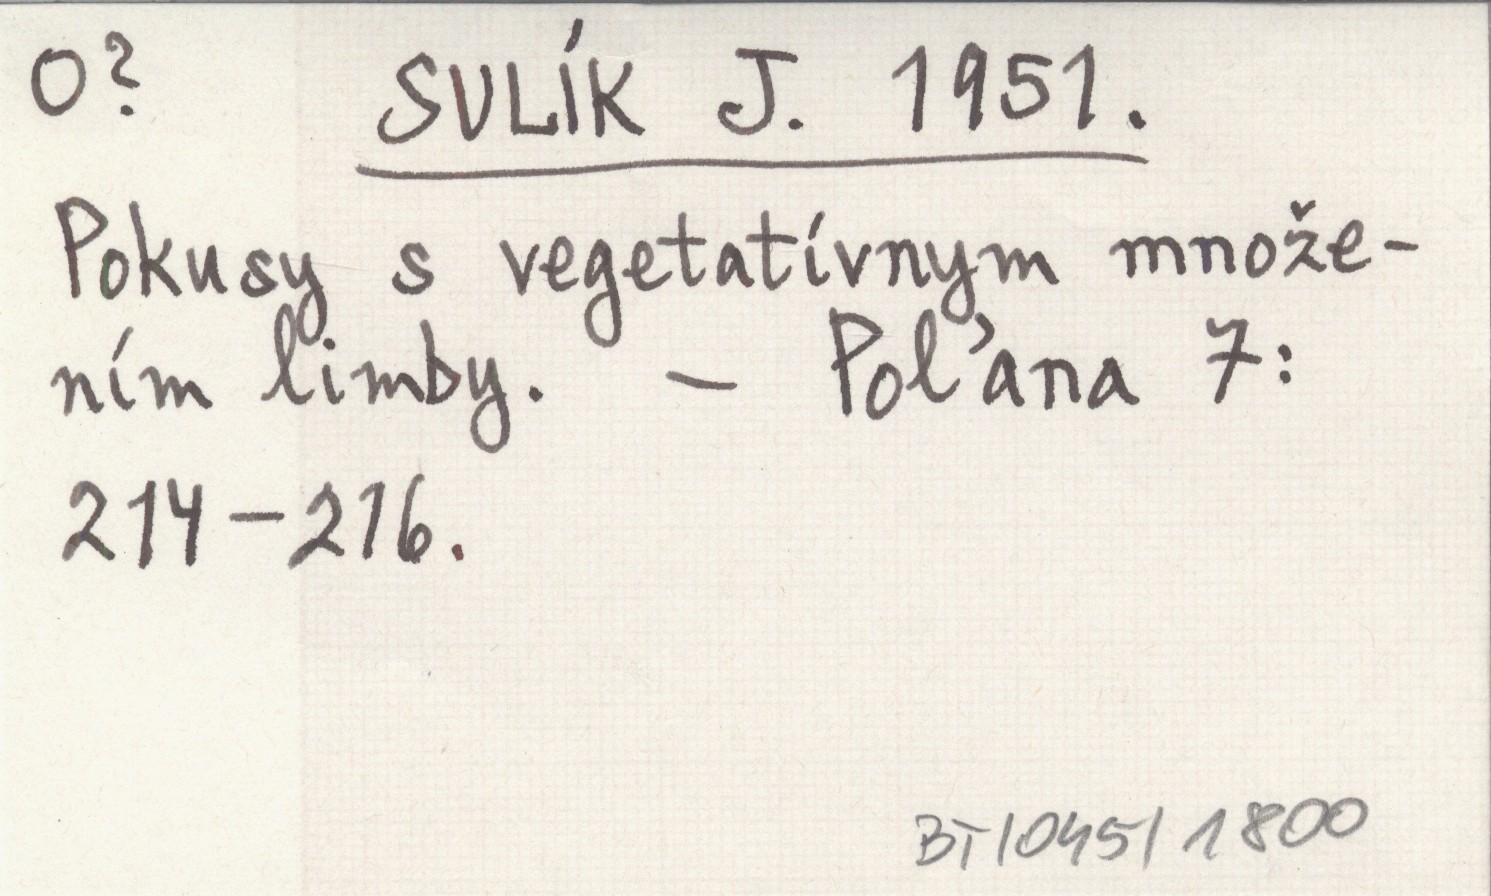 O? SULÍK J. 1951.
Pokusy s vegetatívnym množe-
ním limby. – Poľana 7:
214–216.
BT/045/1800